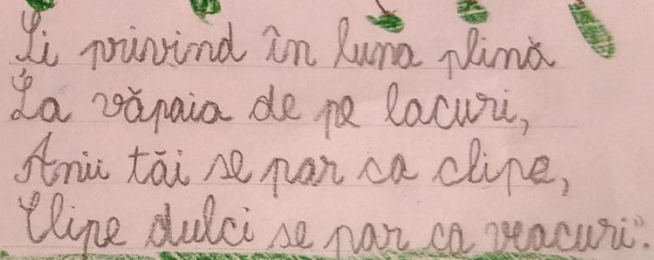 Și privind în luna plină
La văpaia de pe lacuri,
Anii tăi se par ca clipe,
Clipe dulci se par ca veacuri".